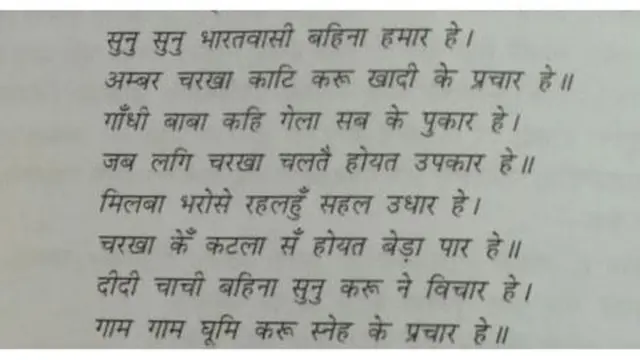 सुनु सुनु भारतवासी बहिना हमार हे।
अम्बर चरखा काटि करू खादी के प्रचार हे॥
गाँधी बाबा कहि गेला सब के पुकार हे।
जब लगि चरखा चलतै होयत उपकार हे॥
मिलबा भरोसे रहलहुँ सहल उधार हे।
चरखा केँ कटला सँ होयत बेड़ा पार हे॥
दीदी चाची बहिना सुनु करू ने विचार हे।
गाम गाम घूमि करू स्नेह के प्रचार हे॥